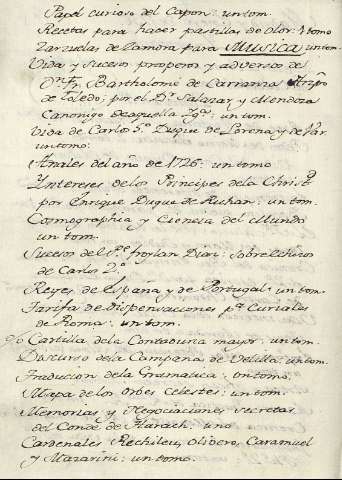 Papel curioso del Capon: un tom.
Recetas para hacer pastillas de olor: 1 tomo
Zarzuelas de Zamora para Musica un tom.
Vida y sucesos prosperos y adversos de
Dn. Fr. Bartholomè de Carranza Arzpo
de Toledo; por el Dr. Salazar y Mendoza
Canonigo de aquella Yga: un tom.
Vida de Carlos 5.º Duque de Lorena y de Var
un tomo:
Anales del año de 1726: un tomo
Yntereses de los Principes de la Christd.
por Enrique Duque de Ruhan: un tom.
Cosmographia y Ciencia del Mundo
un tom.
Suceso del Pe. froylan Diaz: sobre Echizos
de Carlos 2.º
Reyes de España y de Portugal: un tom.
Tarifa de dispensaciones pa. Curiales
de Roma: un tom.
Cartilla de la Contaduria mayor: un tom.
Discurso de la Campana de Velilla: un tom.
Traducion de la Gramatica: un tomo.
Mapa de los Orbes Celestes: un tom.
Memorias y Negociaciones secretas
del Conde de Harach: uno
Cardenales Rechilieu, Olivero, Caramuel
y Mazarini: un tomo.